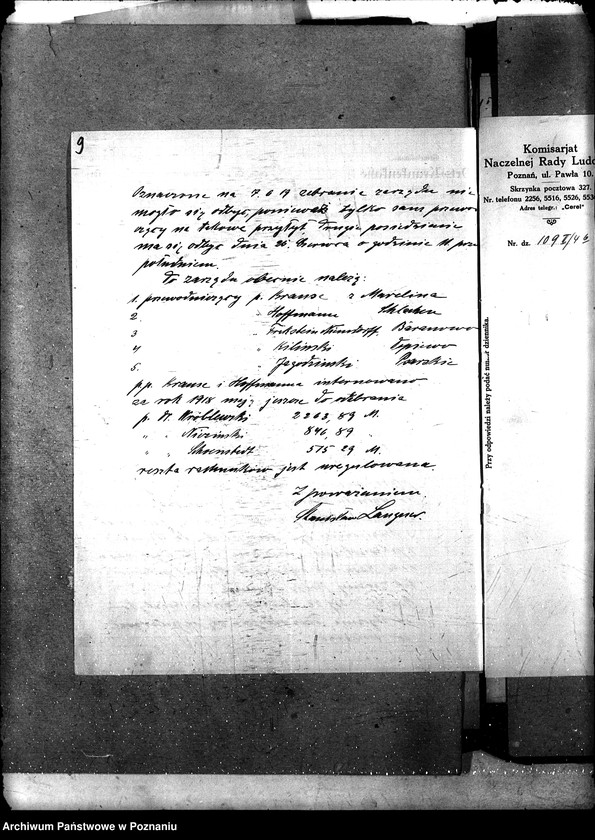 9
Oznaczone na 7.6 19 zebranie zarządu nie
mogło się odbyć, ponieważ tylko sam przewo-
czący na takowe przybył. Drugie posiedzenie
ma się odbyć dnia 26. Czerwca o godzinie 11 prze
południem.
Do zarządu obecnie należą:
1. przewodniczący p. Krause z Marcelina
2 " Hoffmann
3 " Baranowo
4 " Kiliński
5. " Jagodzinski
p.p. Krause i Hoffmanna internowano
za rok 1918 mają jeszcze do odebrania
p. Dr. Wróblewski 2203,89 M.
" " 846,89 "
" " Schoenstedt 575 29 M.
reszta rachunków jest uregulowana.
Z poważaniem.
Stanisław Langner.
Komisarjat
Naczelnej Rady Ludo
Poznań, ul. Pawła 10.
Skrzynka pocztowa 327.
Nr. telefonu 2256, 5516, 5526, 553
Adres telegr.: „Cerel“
Nr. dz. 109
Przy odpowiedzi należy podać dziennika.
Archiwum Państwowe w Poznaniu